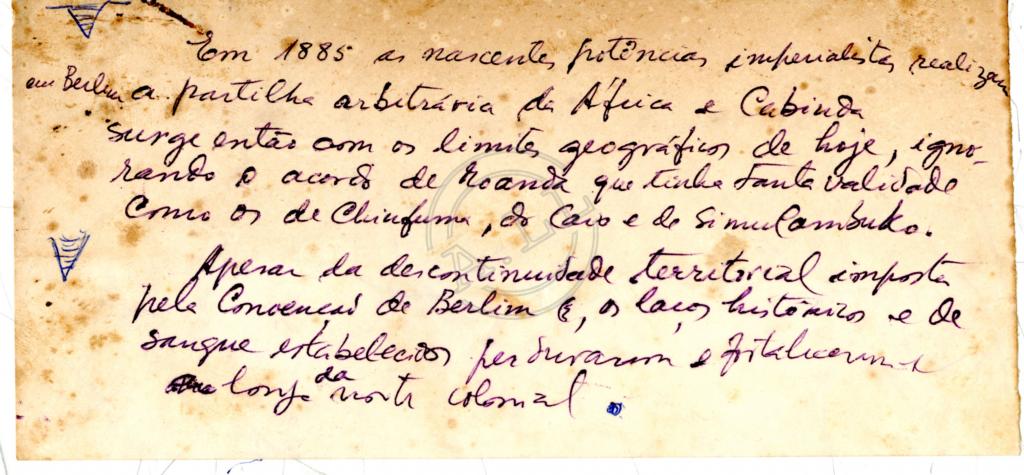 Em 1885 as nascentes potências imperialistas realizam
em Berlim a partilha arbitrária da África e Cabinda
surge então com os limites geográficos de hoje, igno-
rando o acordo de Loanda que tinha tanta validade
como os de Chinfuma, do Caio e de Simulambuko.
Apesar da descontinuidade territorial imposta
pela Convenção de Berlim, os laços históricos e de
sangue estabelecidos perduraram e fortaleceram-se
longe da noite colonial.